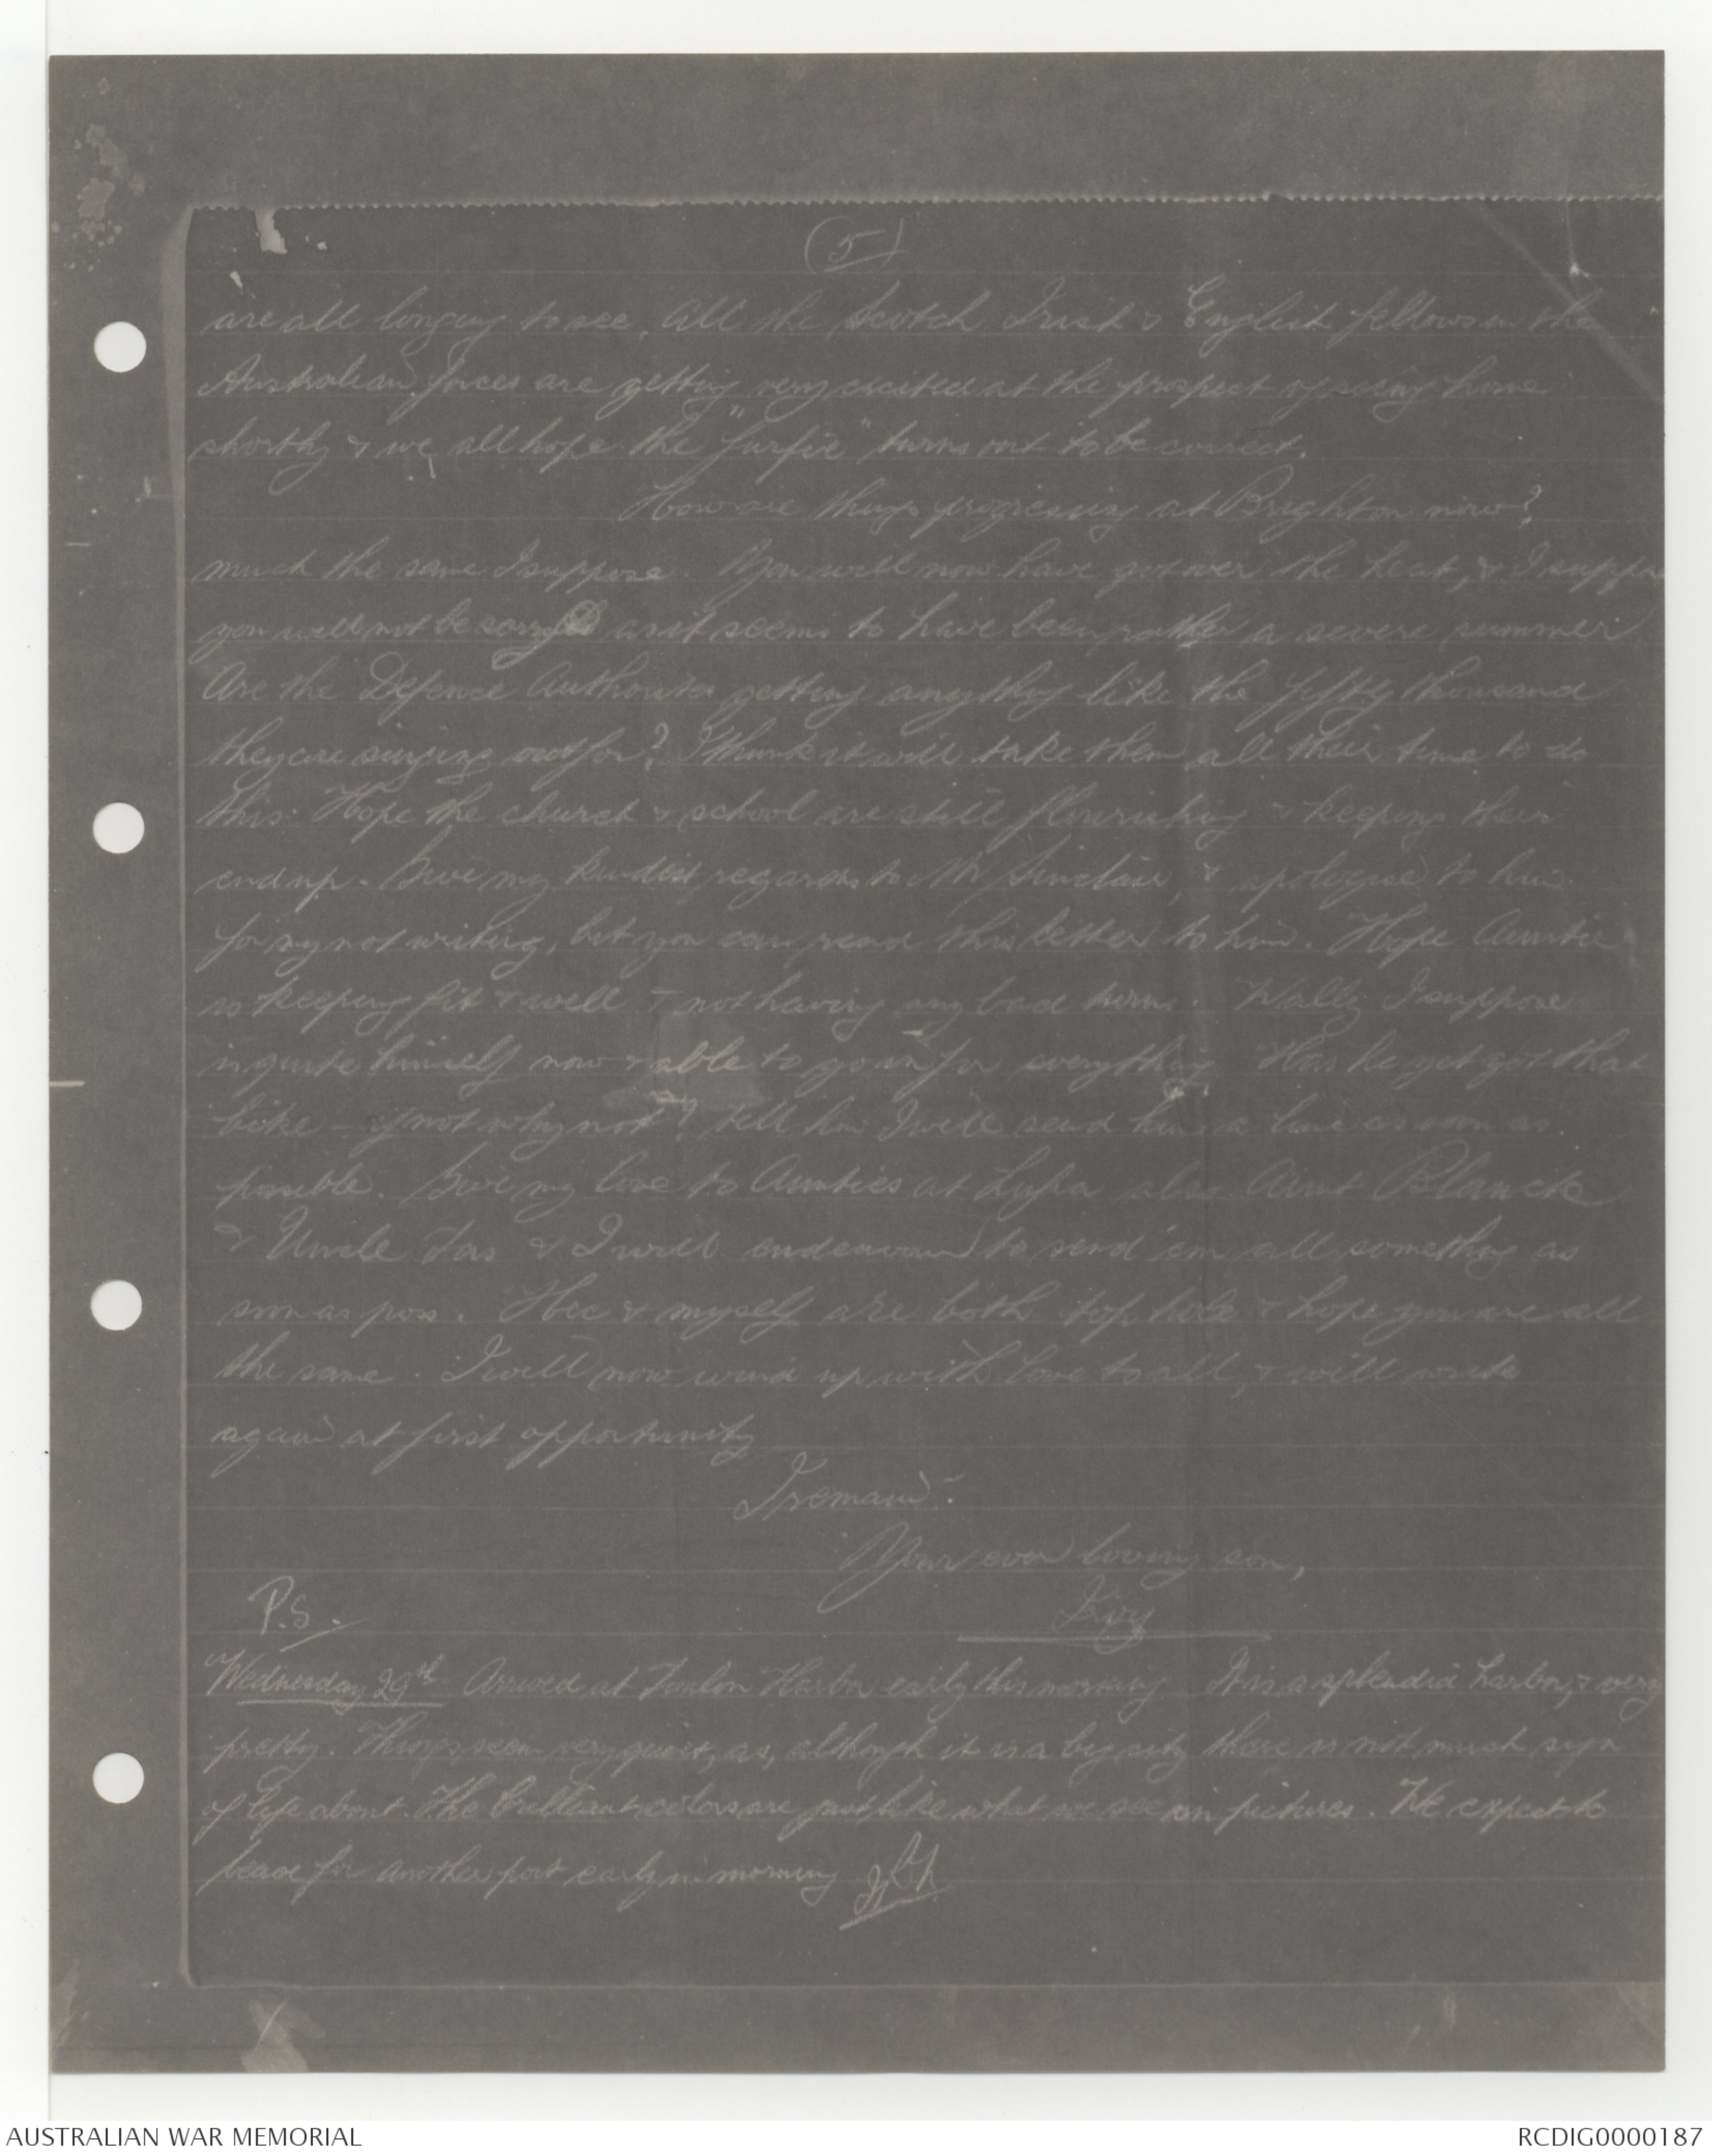 (5)
are all longing to see. All the Scotch Irish & English fellows in the
Australian forces are getting very excited at the prospect of seeing home
shortly & we all hope the "furfie" turns out to be correct.
How are things progressing at Brighton now?
much the same I suppose. You will now have got over the heat, & I suppose
you will not be sorry as it seems to have been rather a severe summer
Are the Defence Authorities getting anything like the fifty thousand
they are singing out for? I think it will take them all their time to do
this. Hope the church & school are still flourishing & keeping their
end up. Give my kindest regards to Mr Sinclair, & apologise to him
for my not writing, but you can read this letter to him. Hope Auntie
is keeping fit & well & not having any bad turns. Wally I suppose
is quite himself now & able to go in for everything. Has he yet got that
bike - if not why not? Tell him I will send him a line as soon as
possible. Give my love to Aunties at also Aunt Blanche
& Uncle & I will endeavour to send 'em all something as
soon as poss. Hec & myself are both top hole & hope you are all
the same. I will now wind up with love to all, & will write
again at first opportunity
I remain:
Your ever loving son,
P.S.
Wednesday 29th Arrived at Toulon Harbor early this morning It is a splendid harbor, & very
pretty. Things seem very quiet, as, although it is a big city there is not much sign
of life about. The brilliant colors are just like what we see in pictures. We expect to
leave for another port early in morning
AUSTRALIAN WAR MEMORIAL
RCDIG0000187